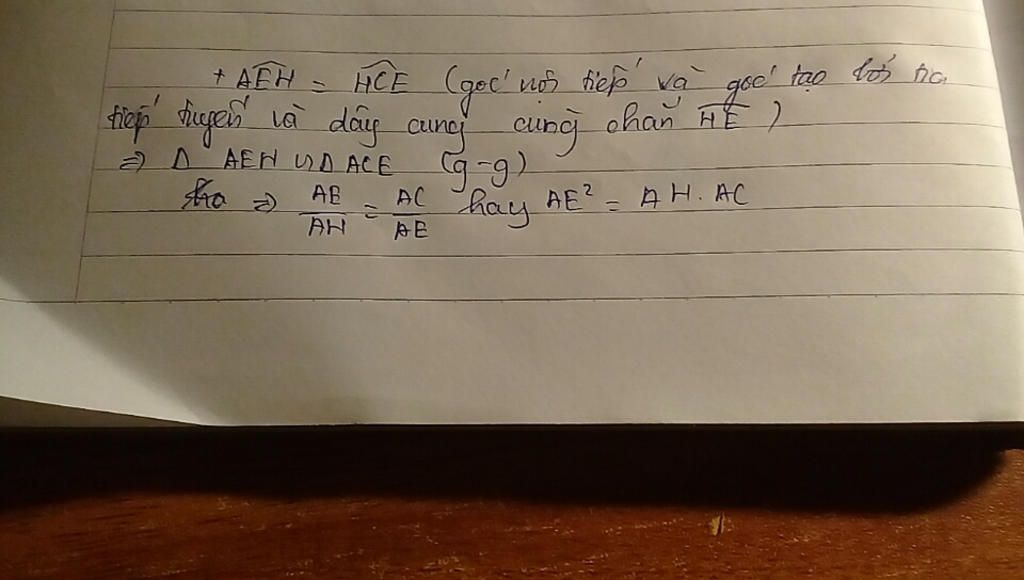 + AEH = HCE (góc nội tiếp và góc tạo bởi tia
tiếp tuyến và dây cung cùng chắn HE )
⇒ Δ AEH ∽ Δ ACE (g-g)
⇒ AE/AH = AC/AE hay AE² = AH. AC